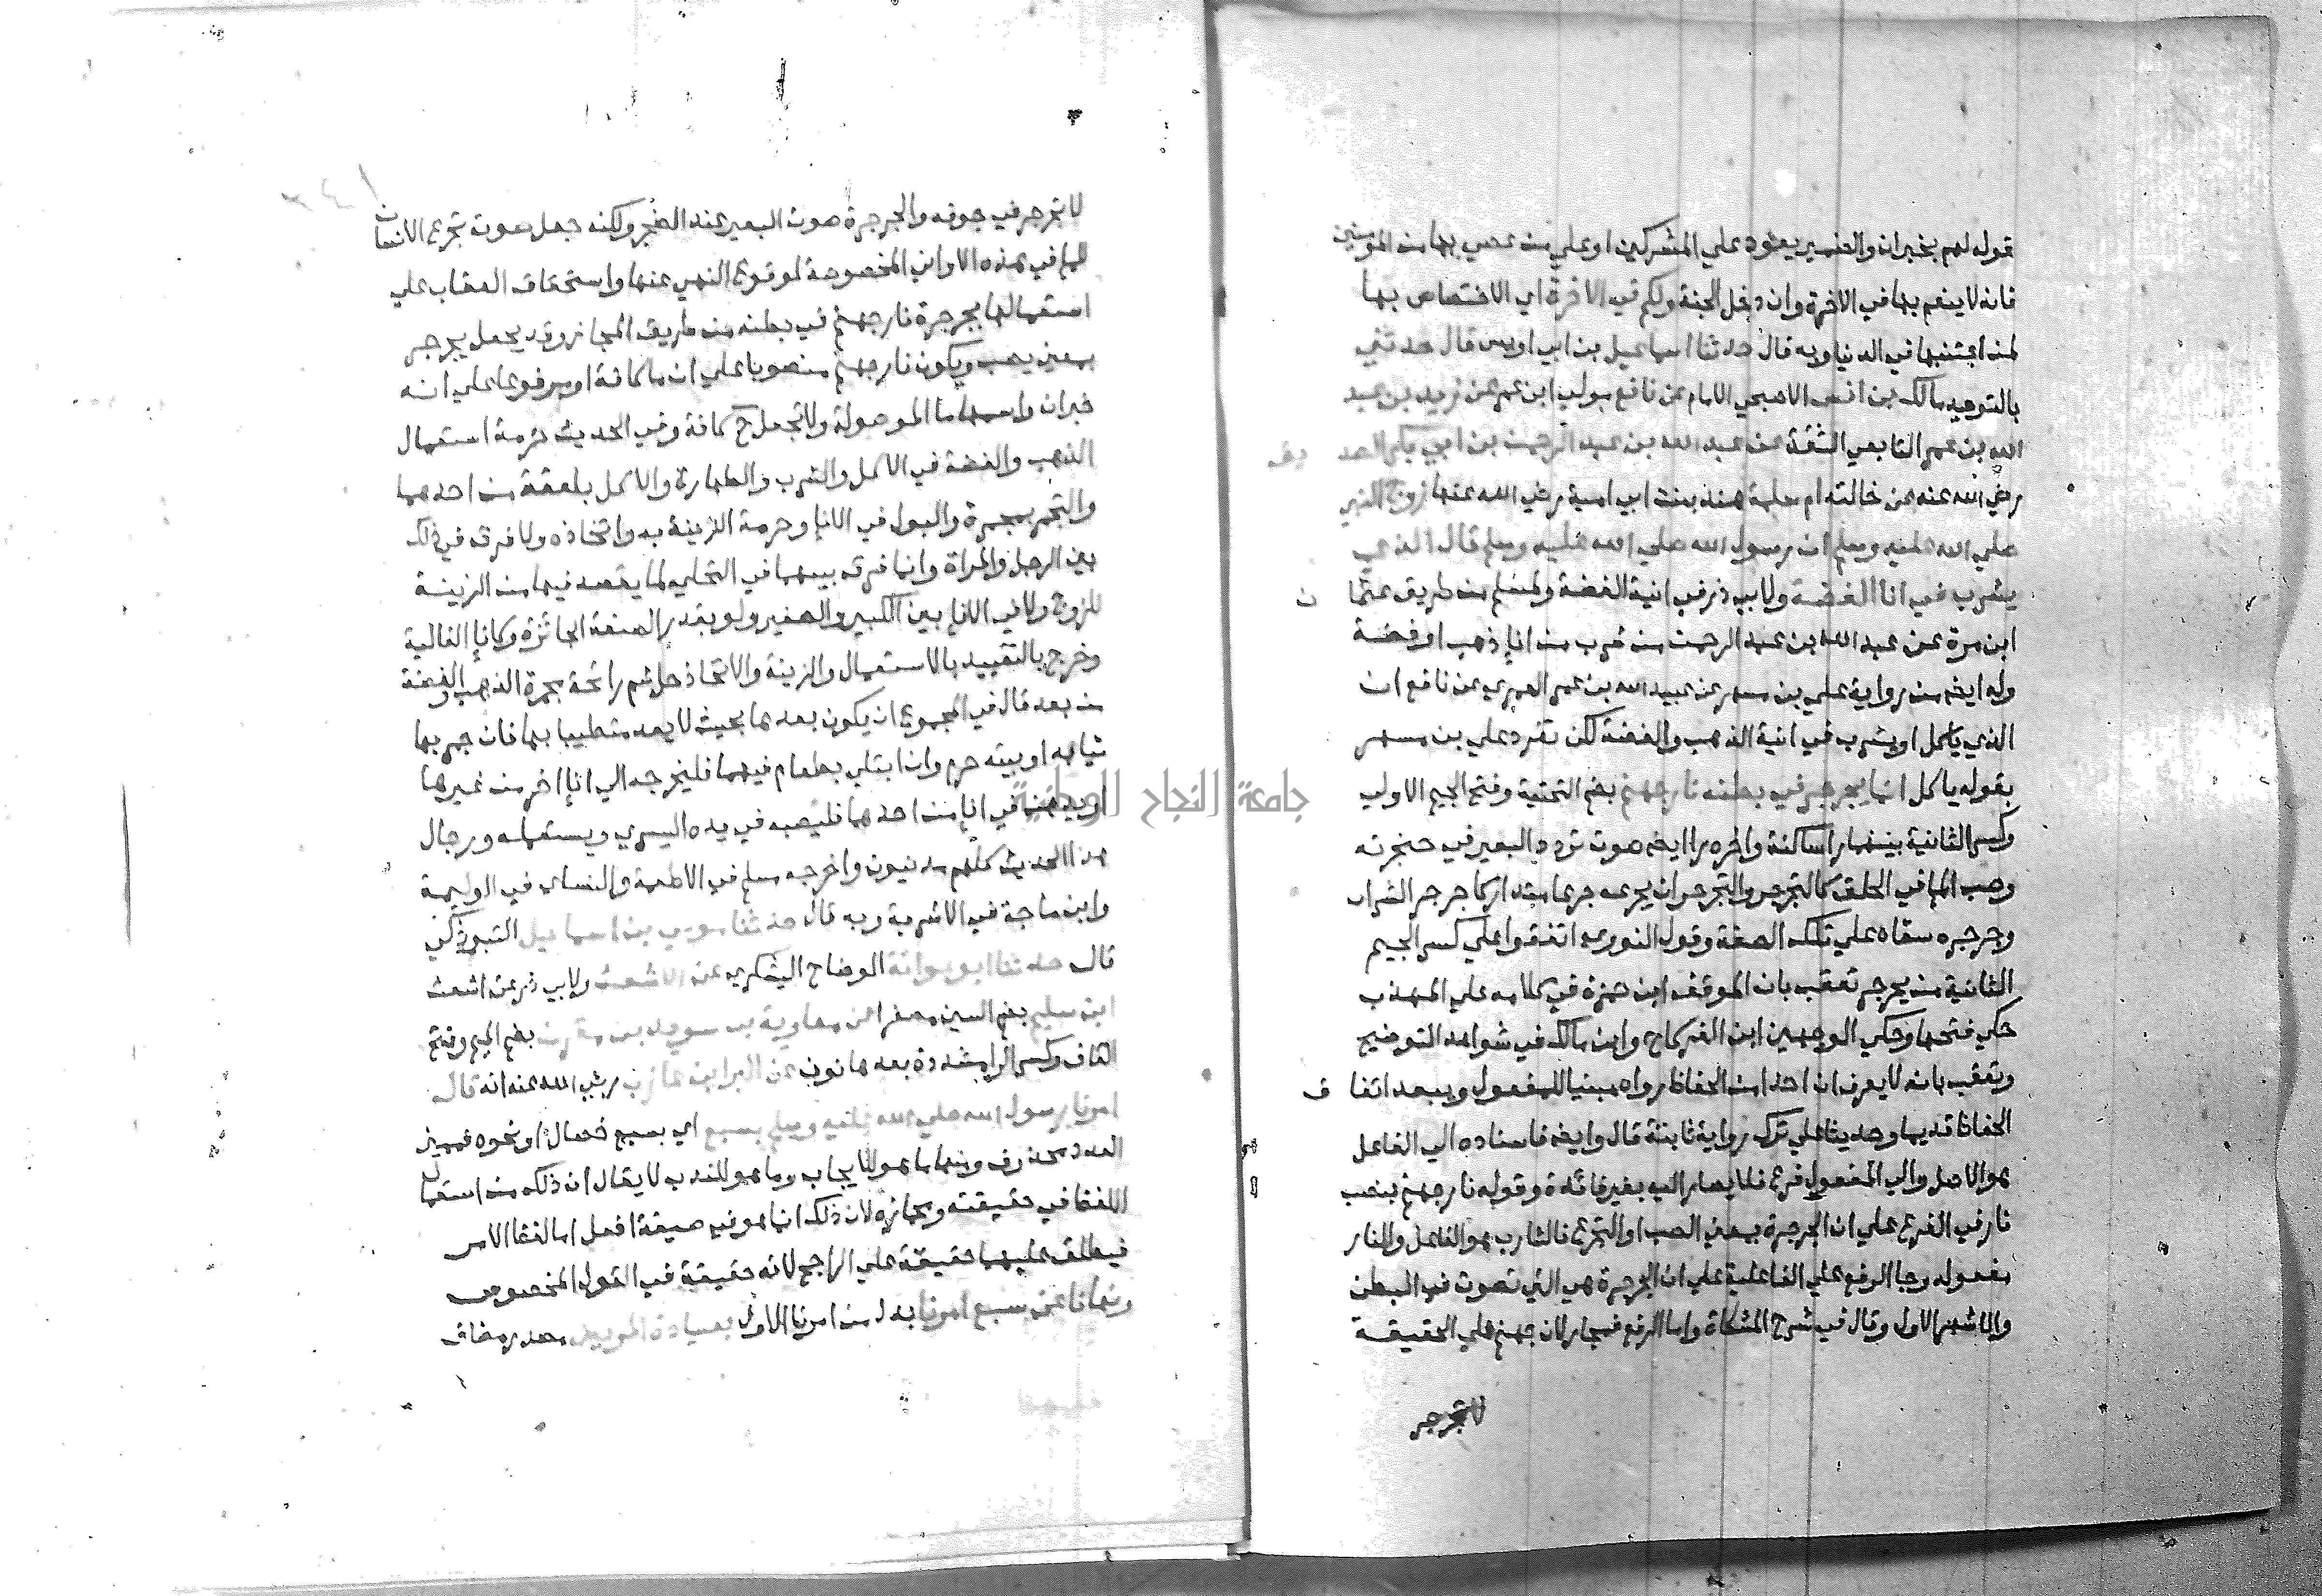 قوله لهم بخبران والضمير يعود علي المشركين او علي من عصي بها من المومنين
فانه لا ينعم بها في الاخرة وان دخل الجنة ولكم في الاخرة اي الاختصاص بها
لمن اجتنبها في الدنيا وبه قال حدثنا اسماعيل بن ابي اويس قال حدثني
بالتوحيد مالك بن انس الاصبحي الامام عن نافع مولي ابن عمر عن زيد بن عبد
الله بن عمر التابعي الثقة عن عبد الله بن عبد الرحمن بن ابي بكر الصد يق
رضي الله عنه عن خالته ام سلمة هند بنت ابي امية رضي الله عنها زوج النبي
صلي الله عليه وسلم ان رسول الله صلي الله عليه وسلم قال الذي
يشرب في انا الفضة ولابي ذر في انية الفضة ولمسلم من طريق عثما ن
ابن مرة عن عبد الله بن عبد الرحمن من شرب من انا ذهب او فضة
وله ايضا من رواية علي بن مسهر عن عبيد الله بن عمر العمري عن نافع ان
الذي ياكل او يشرب في انية الذهب والفضة لكن تفرد علي بن مسهر
بقوله ياكل انما يجرجر في بطنه نار جهنم بضم التحتية وفتح الجيم الاولي
وكسر الثانية بينهما را ساكنة واخره را ايضا صوت تردد البعير في حنجرته
وصب الما في الحلق كالتجرجر والتجرجر ان يجرعه جرعا متداركا جرجر الشراب
وجرجره سقاه علي تلك الصفة وقول النووي اتفقوا علي كسر الجيم
الثانية من يجرجر تعقب بان الموفق ابن حمزة في كلامه علي المهذب
حكي فتحها وحكي الوجهين ابن الفركاح وابن مالك في شواهد التوضيح
وتعقب بانه لا يعرف ان احدا من الحفاظ رواه مبنيا للمفعول ويبعد اتفا ق
الحفاظ قديما وحديثا علي ترك رواية ثابتة قال وايضا فاسناده الي الفاعل
هو الاصل والي المفعول فرع فلا يصار اليه بغير فائدة وقوله نار جهنم بنصب
نار في الفرع علي ان الجرجرة بمعني الصب او التجرع فالشارب هو الفاعل والنار
مفعوله وجا الرفع علي الفاعلية علي ان الجرجرة هي التي تصوت في البطن
والاشهر الاول وقال في شرح المشكاة واما الرفع فمجاز لان جهنم علي الحقيقة
لا تجرجر
لا تجرجر في جوفه والجرجرة صوت البعير عند الضجر ولكنه جعل صوت تجرع الانسان
للما في هذه الاواني المخصوصة لوقوع النهي عنها واستحقاق العقاب علي
استعمالها كجرجرة نار جهنم في بطنه من طريق المجاز وقد يجعل يجرجر
بمعني يصب ويكون نار جهنم منصوبا علي ان ما كافة او مرفوعا علي انه
خبران واسمها ما الموصولة ولا تجعل ح كافة وفي الحديث حرمة استعمال
الذهب والفضة في الاكل والشرب والطهارة والاكل بملعقة من احدهما
والتجمر بمجمرة والبول في الانا وحرمة الزينة به واتخاذه ولا فرق في ذلك
بين الرجل والمراة وانما فرق بينهما في التحلي لما يقصد فيها من الزينة
للزوج ولا في الانا بين الكبير والصغير ولو بقدر الضبة الجائزة وكانا الغالية
وخرج بالتقييد بالاستعمال والزينة والاتخاذ حل شم رائحة مجمرة الذهب والفضة
من بعد قال في المجموع ان يكون بعدها بحيث لا يعد متطيبا بها فان جمر بها
ثيابه او بيته حرم وان ابتلي بطعام فيهما فليخرجه الي انا اخر من غيرها
او بدهن في انا من احدهما فليصبه في يده اليسري ويستعمله ورجال
هذا الحديث كلهم مدنيون واخرجه مسلم في الاطعمة والنساي في الوليمة
وابن ماجة في الاشربة وبه قال حدثنا موسي بن اسماعيل التبوذكي
قال حدثنا ابو عوانة الوضاح اليشكري عن الاشعث ولابي ذر عن اشعث
ابن سليم بضم السين مصغرا عن معاوية بن سويد بن مقرن بضم الميم وفتح
القاف وكسر الرا مشددة بعدها نون عن البرا بن عازب رضي الله عنه انه قال
امرنا رسول الله صلي الله عليه وسلم بسبع اي بسبع خصال او نحوه فمميز
العدد محذوف ومنها ما هو للايجاب وما هو للندب لا يقال ان ذلك من استعمال
اللفظ في حقيقته ومجازه لان ذلك انما هو في صيغة افعل اما لفظ الامر
فيطلق عليهما حقيقة علي الراجح لانه حقيقة في القول المخصوص
ونهانا عن سبع امرنا بدل من امرنا الاول بعيادة المريض مصدر مضاف
جامعة النجاح الوطنية